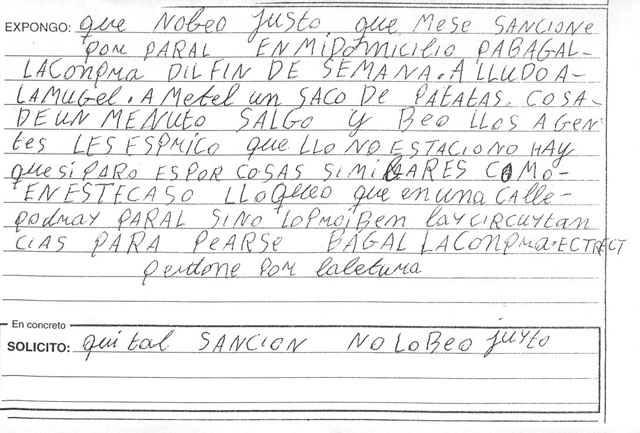 EXPONGO: que NOBEO justo, que MESE SANCIONE
POR PARAL EN MIDOMICILIO PABAGAL-
LACONPRA DIL FIN DE SEMANA. A LLUDO A-
LAMUGEL. A METEL un SACO DE PATATAS. COSA-
DE UN MENUTO SALGO Y BEO LLOS AGEN
tes LES ESPRICO que LLO NO ESTACIONO HAY
que si PARO ES POR COSAS SIMILARES COMO-
EN ESTE CASO LLO QUEO que en una CALLE-
PARAL SI NO
CIAS PARA PEARSE BAGAL LACONPRA. ECTRECT
perdone POR laletura
En concreto
SOLICITO: quital SANCION NO LO BEO justo